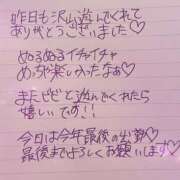 昨日も沢山遊んでくれて
ありがとうございました♡
ぬるぬるイチャイチャ
めっちゃ楽しかったなぁ♡
また
と遊んでくれたら
嬉しいです!
今日は今年最後の出勤♡
最後までよろしくお願いします♡